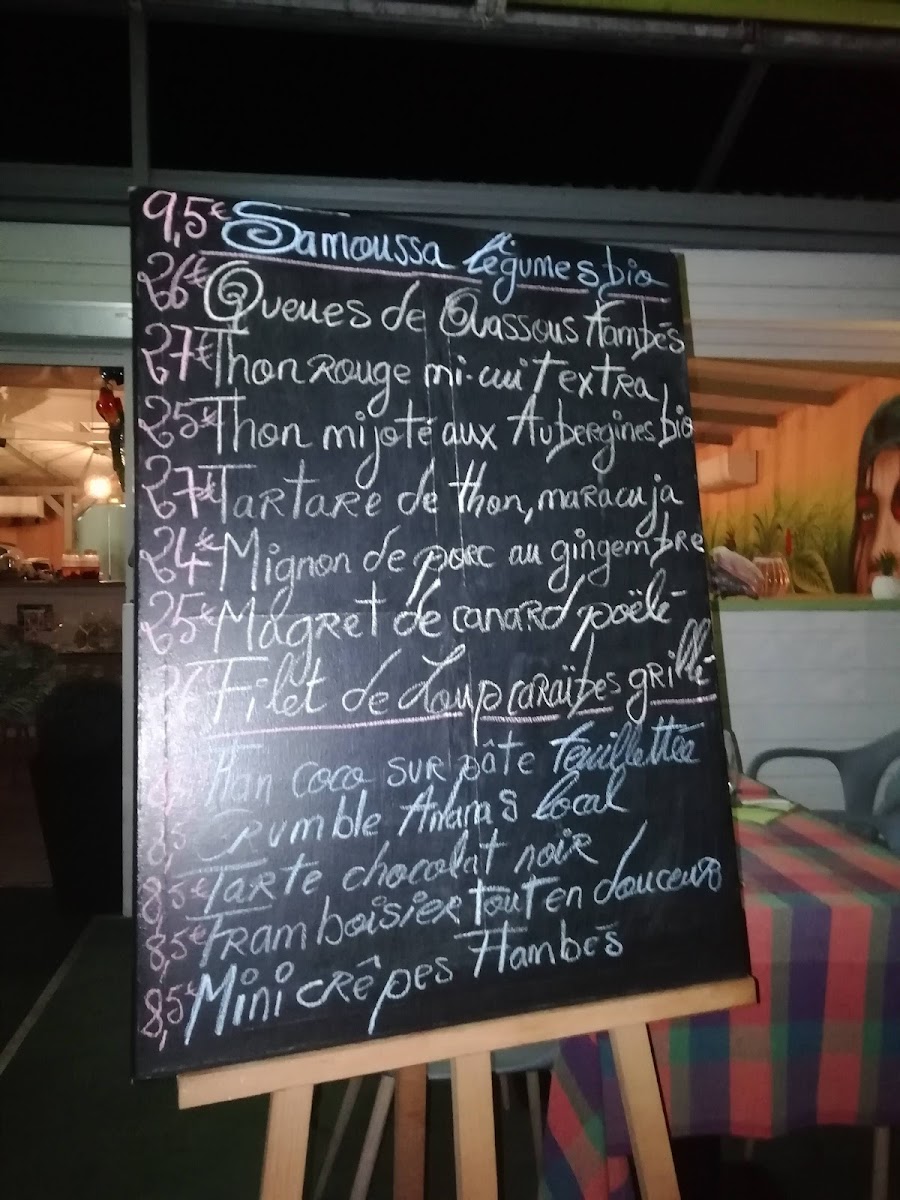 9,5€ Samoussa légumes bio
26€ Queues de Ouassous flambés
27€ Thon rouge mi-cuit extra,
25€ Thon mijoté aux Aubergines bio
27€ Tartare de thon, maracuja
24€ Mignon de porc au gingembre
25€ Magret de canard poëlé
Filet de Loup caraïbes grillé
flan coco sur pâte feuillettée
8,5 Crumble Ananas local
8,5€ Tarte chocolat noir
8,5€ Framboisier tout en douceur
8,5€ Mini crêpes flambés